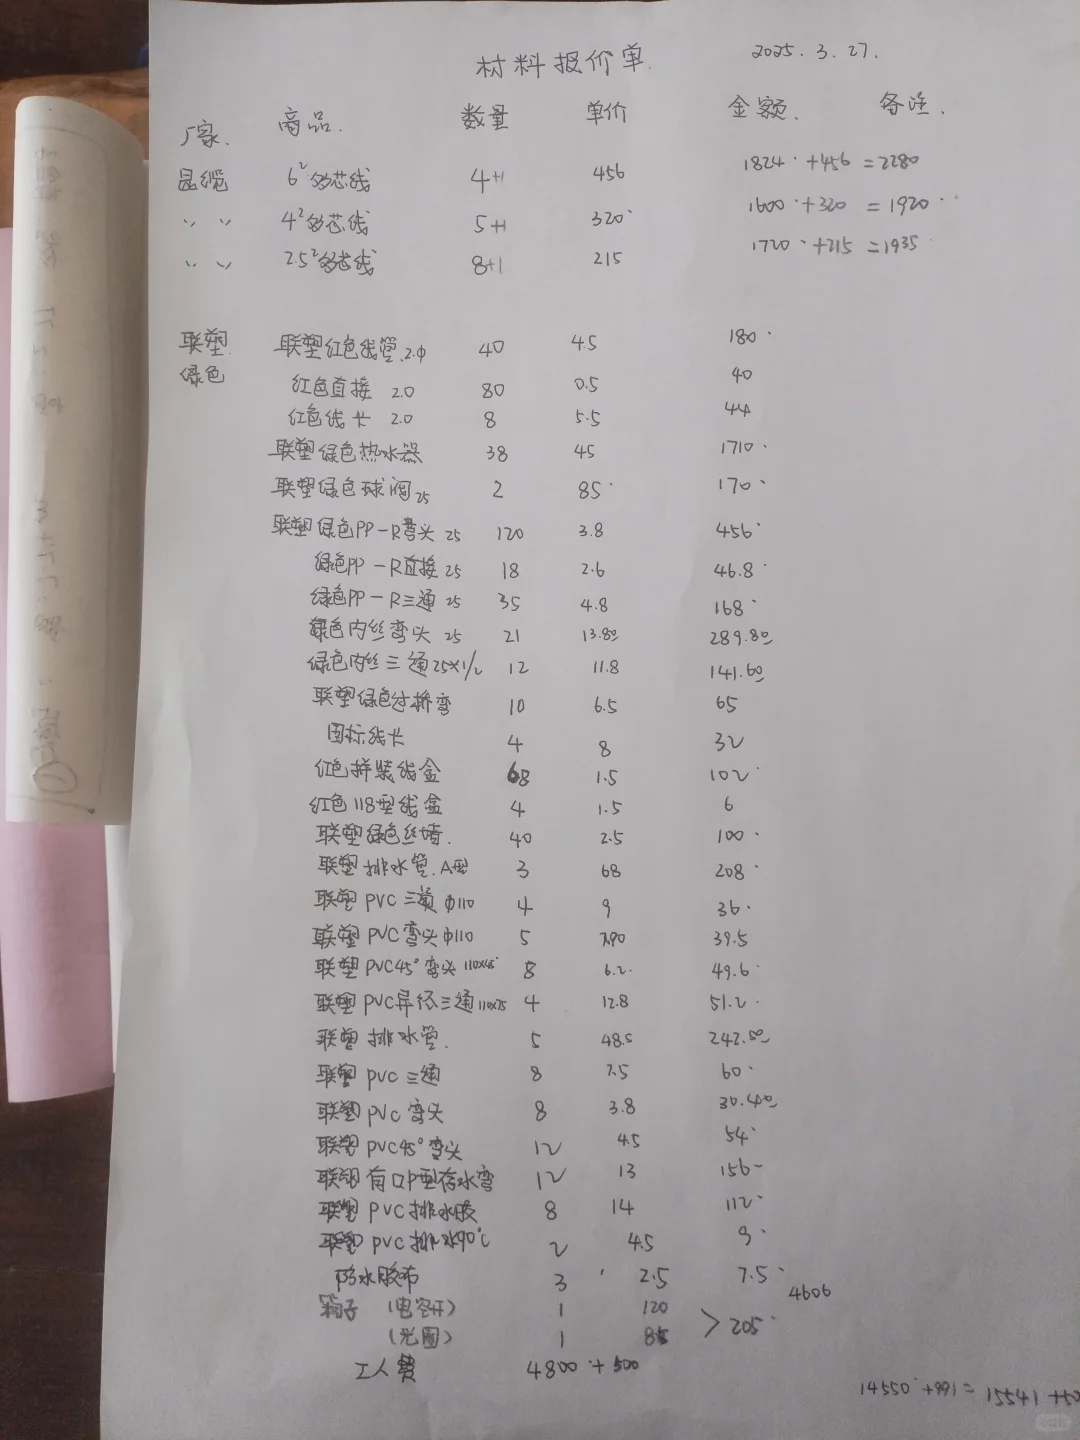 材料报价单. 2025.3.27.
厂家. 商品. 数量 单价 金额. 备注.
昆缆 6²多芯线 4+1 456 1824+456=2280
〃 4²多芯线 5+1 320 1600+320=1920
〃 2.5²多芯线 8+1 215 1720+215=1935
联塑 联塑红色线管.2.0 40 4.5 180
绿色 红色直接 2.0 80 0.5 40
红色线卡 2.0 8 5.5 44
联塑绿色热水器 38 45 1710
联塑绿色球阀25 2 85 170
联塑绿色PP-R弯头 25 120 3.8 456
绿色PP-R直接25 18 2.6 46.8
绿色PP-R三通25 35 4.8 168
绿色内丝弯头 25 21 13.80 289.80
绿色内丝三通25×1/2 12 11.8 141.60
联塑绿色过桥弯 10 6.5 65
国标线卡 4 8 32
红色拼装线盒 68 1.5 102
红色118型线盒 4 1.5 6
联塑绿色丝堵. 40 2.5 100
联塑排水管.A型 3 68 208
联塑PVC三通φ110 4 9 36
联塑PVC弯头φ110 5 7.90 39.5
联塑PVC45°弯头110×45° 8 6.2 49.6
联塑PVC异径三通110×75 4 12.8 51.2
联塑排水管. 5 48.5 242.50
联塑PVC三通 8 7.5 60
联塑PVC弯头 8 3.8 30.40
联塑PVC45°弯头 12 4.5 54
联塑有口P型存水弯 12 13 156
联塑PVC排水胶 8 14 112
联塑PVC排水90℃ 2 4.5 9
防水胶布 3 2.5 7.5
4606
箱子 (电容开) 1 120
(光圈) 1 85 > 205
工人费 4800+500
14550+991=15541+50